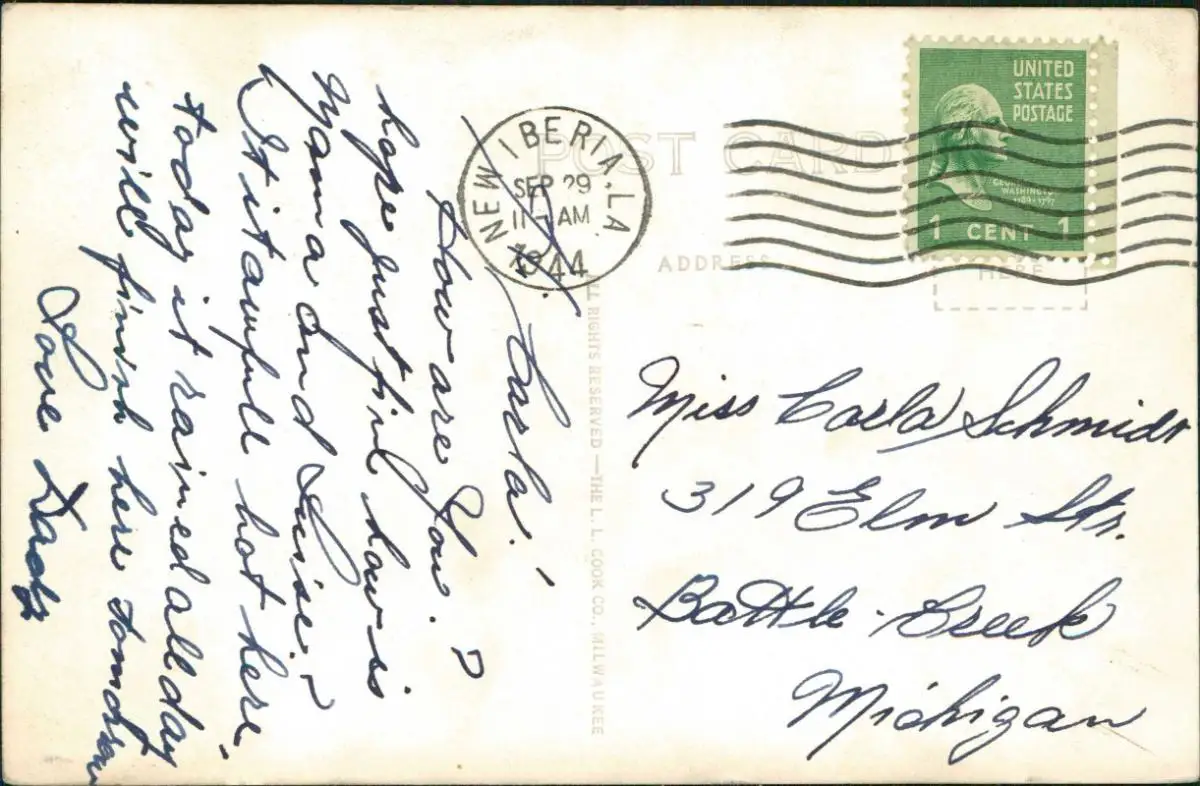 Carla!
How are You. ?
hope just fine how is
Mama and Luise.
It is awfull hot here
today it rained all day
will finish here tomorrow
Love Dady
POST CARD
NEW IBERIA, LA.
SEP 29
11 AM
1944
UNITED
STATES
POSTAGE
GEORGE
WASHINGTON
1789-1797
1 CENT 1
ADDRESS
HERE
ALL RIGHTS RESERVED — THE L. L. COOK CO., MILWAUKEE
Miss Carla Schmidt
319 Elm Str.
Battle-Creek
Michigan